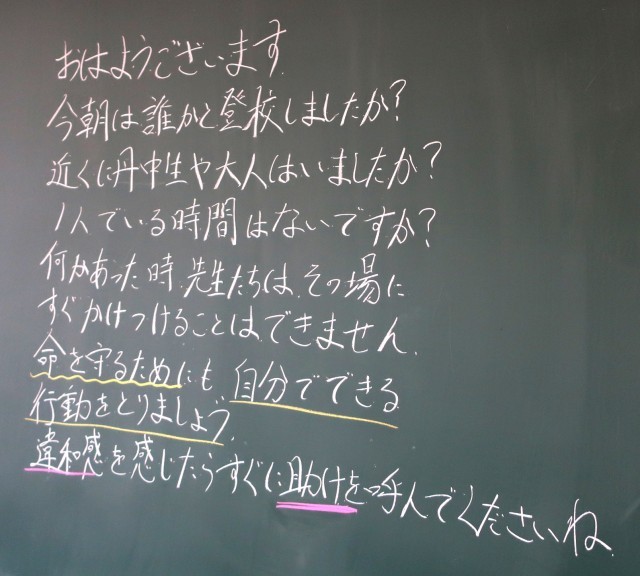 おはようございます
今朝は誰かと登校しましたか?
近くに丹中生や大人はいましたか?
1人でいる時間はないですか?
何かあった時、先生たちは、その場に
すぐかけつけることはできません.
命を守るためにも、自分でできる
行動をとりましょう.
違和感を感じたらすぐに助けを呼んでくださいね.